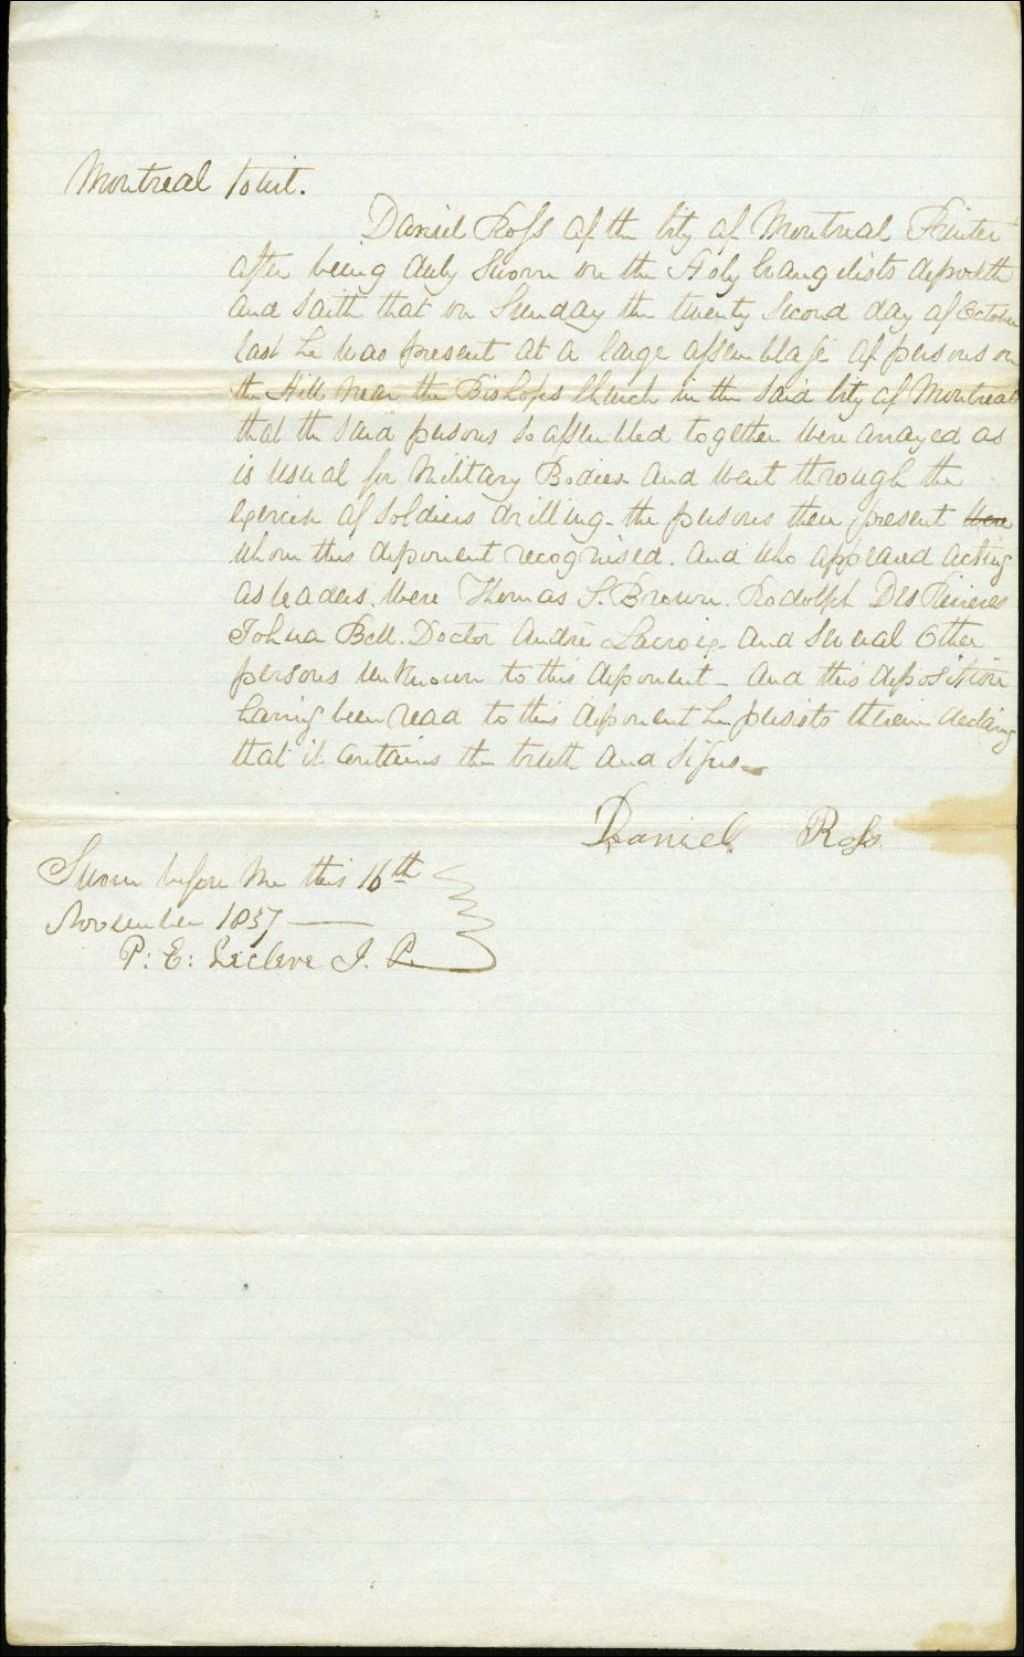 Montreal towit.
Daniel Ross of the City of Montreal Printer
after being duly Sworn on the Holy Evangelists deposeth
and Saith that on Sunday the twenty Second day of October
last he was present at a large assemblage of persons on
the Hill near the Bishops Church in the said City of Montreal
that the said persons so assembled together were arrayed as
is usual for Military Bodies and went through the
exercise of Soldiers drilling - the persons then present were
whom this deponent recognised. and who appeared acting
as leaders. were Thomas S. Brown. Rodolph Des Rivieres
Joshua Bell. Doctor André Lacroix - and several Other
persons unknown to this deponent - and this deposition
having been read to this deponent he persists therein declaring
that it contains the truth and signs -
Daniel Ross
Sworn before me this 16th
November 1837
P: E: Leclere J. P.